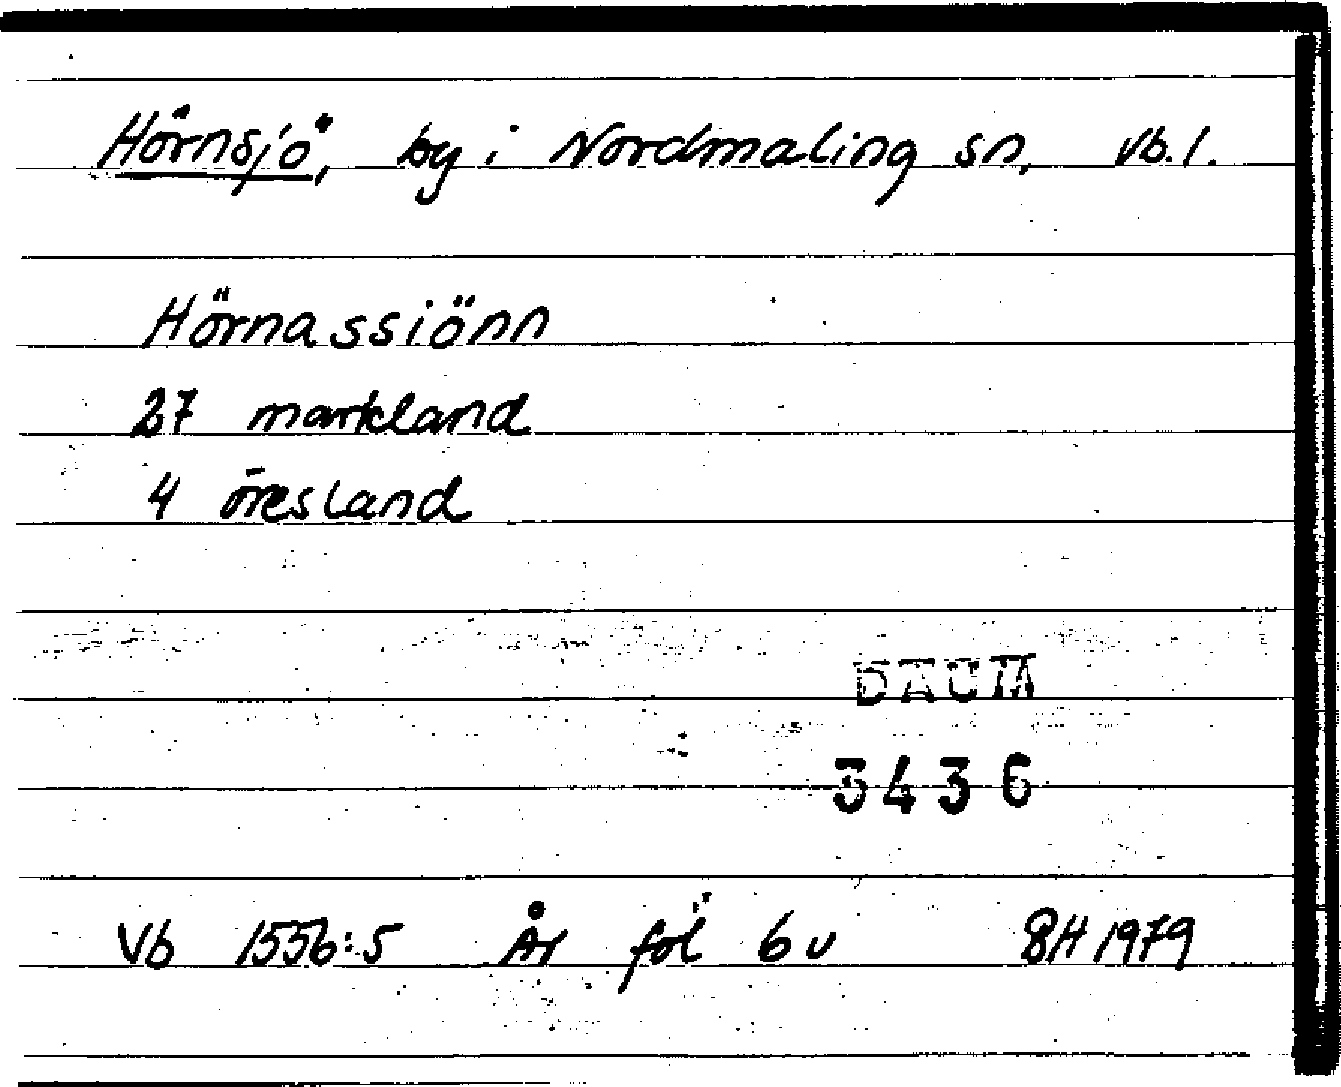 Hörnsjö, by i Nordmaling sn, Vb.l.
Hörnassiönn
27 markland
4 öresland
DAUM
3436
Vb 1556:5 År fol 6v BH 1979